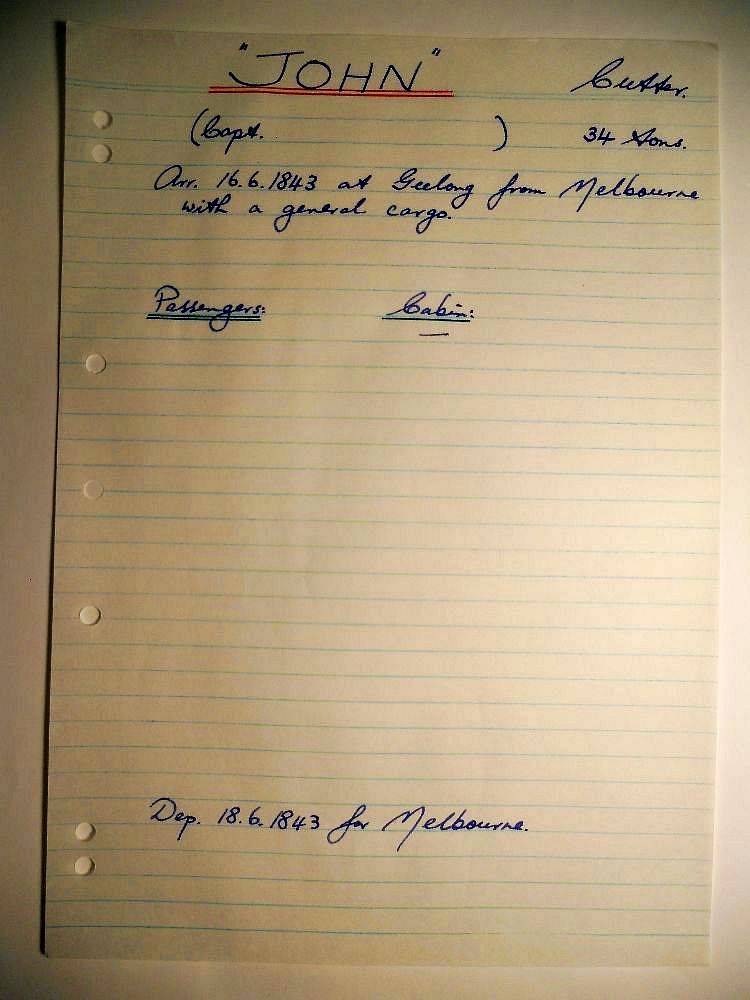 "JOHN" Cutter.
(Capt. ) 34 tons.
Arr. 16.6.1843 at Geelong from Melbourne
with a general cargo.
Passengers: Cabin:
—
Dep. 18.6.1843 for Melbourne.